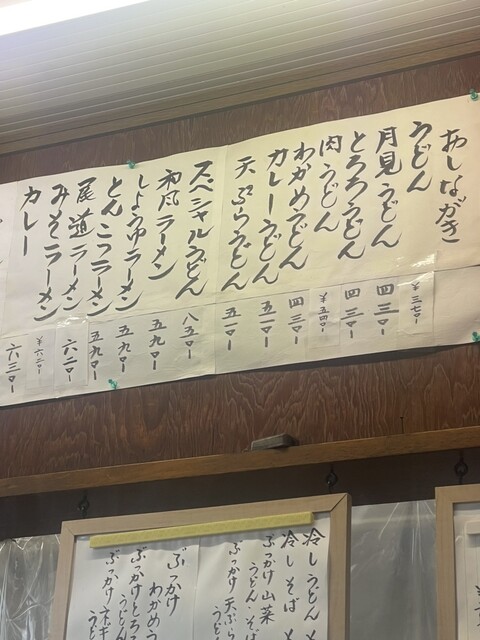 おしながき
うどん ¥三七〇-
月見うどん 四三〇-
とろろうどん 四三〇-
肉うどん ¥五四〇-
わかめうどん 四三〇-
カレーうどん 五一〇-
天ぷらうどん 五一〇-
スペシャルうどん 八五〇-
和風ラーメン 五九〇-
しょうゆラーメン 五九〇-
とんこつラーメン 五九〇-
尾道ラーメン 六二〇-
みそラーメン ¥六二〇-
カレー 六三〇-
冷しうどん
冷しそば
ぶっかけ山菜
うどん・そば
ぶっかけ天ぷら
うど
ぶっかけ
わかめう
ぶっかけとろろ
うどん
ぶっかけネギ
うど